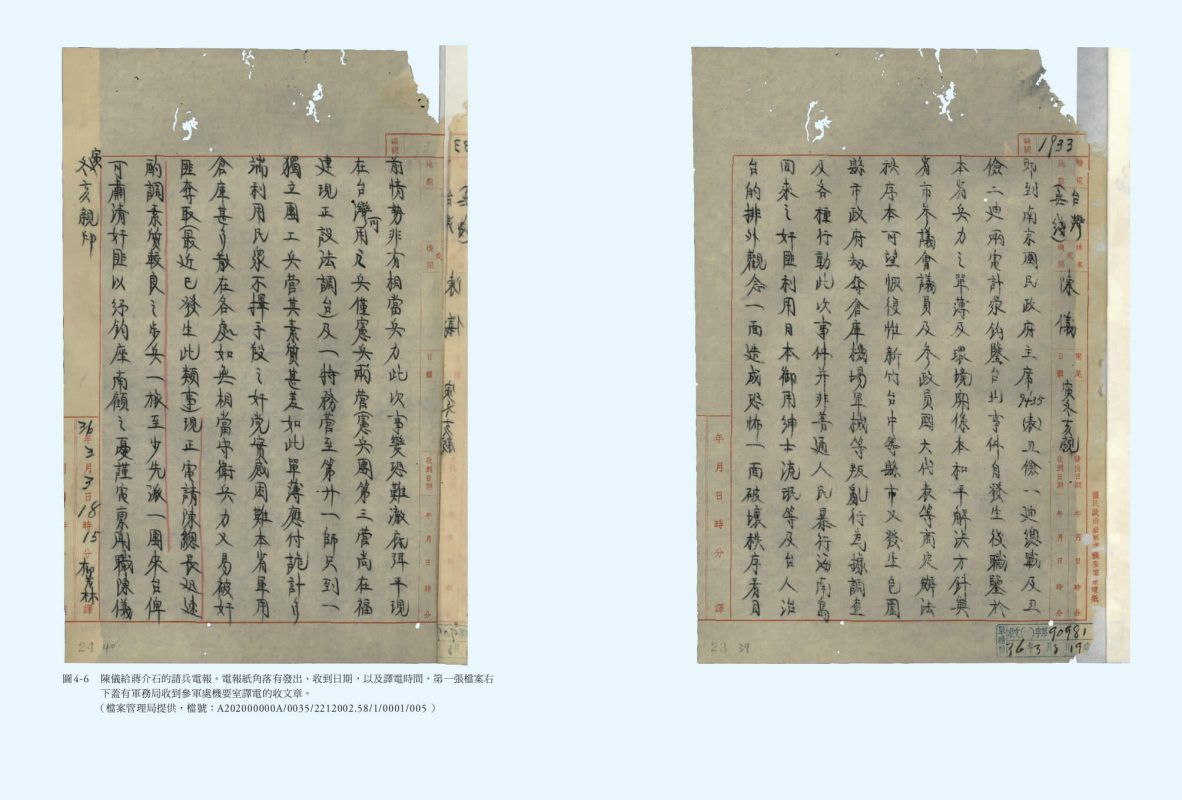 1933
台灣
陳儀
寅冬亥親
即到南京國民政府主席9435(表)丑儉一迪總戰及丑
儉二迪兩電計蒙鈞鑒台北事件自發生後職鑒於
本省兵力之單薄及環境關係本和平解決方針與
省市參議會議員及參政員國大代表等商定辦法
秩序本可望恢復惟新竹台中等縣市又發生包圍
縣市政府劫奪倉庫機場軍械等叛亂行為據調查
及各種行動此次事件并非普通人民暴行海南島
回來之奸匪利用日本御用紳士流氓等及台人治
台的排外觀念一面造成恐怖一面破壞秩序看目
年月日時分 譯
90981
36年3月3日19
23 39
前情勢非有相當兵力此次事變恐難徹底弭平現
在台灣可用之兵僅憲兵兩營憲兵團第三營尚在福
建現正設法調台及一特務營至第廿一師只到一
獨立團工兵營其素質甚差如此單薄應付詭計多
端利用民眾不擇手段之奸黨實感困難本省軍用
倉庫甚多散在各處如無相當守衛兵力又易被奸
匪奪取最近已發生此類事現正電請陳總長迅速
酌調素質較良之步兵一旅至少先派一團來台俾
可肅清奸匪以紓鈞座南顧之憂謹電稟聞職陳儀
寅冬亥親印
36年3月3日18時15分 柳茂林譯
24 40
圖4-6 陳儀給蔣介石的請兵電報。電報紙角落有發出、收到日期,以及譯電時間,第一張檔案右
下蓋有軍務局收到參軍處機要室譯電的收文章。
(檔案管理局提供,檔號:A202000000A/0035/2212002.58/1/0001/005)